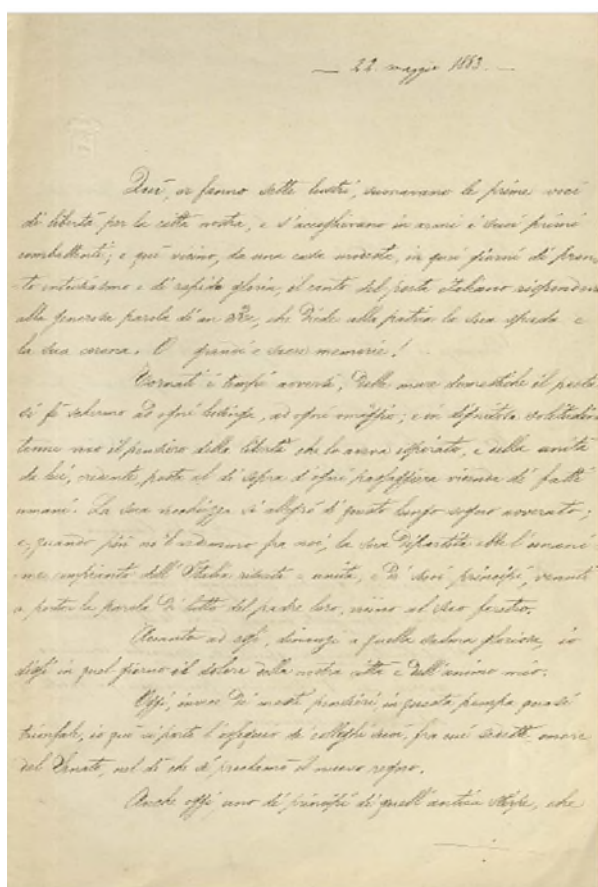 — 22. maggio 1883. —
Qui, or fanno sette lustri, suonavano le prime voci
di libertà per la città nostra, e s'accoglievano in armi i suoi primi
combattenti; e qui vicino, da una casa modesta, in quei giorni di pron-
to entusiasmo e di rapida gloria, il canto del poeta italiano rispondeva
alla generosa parola d'un Re, che diede alla patria la sua spada e
la sua corona. O grandi e sacre memorie!
Tornati i tempi avversi, delle mura domestiche il poeta
si fè schermo ad ogni lusinga, ad ogni omaggio; e in dignitosa solitudine
tenne vivo il pensiero della libertà che lo aveva ispirato, e della unità
da lui, credente, posta al di sopra d'ogni passeggiera vicenda di fatti
umani. La sua vecchiezza si allegrò di questo lungo sogno avverato;
e, quando più nol vedemmo fra noi, la sua dipartita ebbe l'unani-
me compianto dell'Italia redenta e unita, e di suoi principi, venuti
a portar la parola di lutto del padre loro, vicino al suo feretro.
Accanto ad essi, dinanzi a quella salma gloriosa, io
dissi in quel giorno il dolore della nostra città e dell'animo mio.
Oggi, invece di mesti pensieri, in questa pompa quasi
trionfale, io qui vi porto l'ossequio de' colleghi suoi, fra cui sedette onore
del Senato, nel dì che si proclamò il nuovo regno.
Anche oggi uno di principi di quell'antica stirpe, che